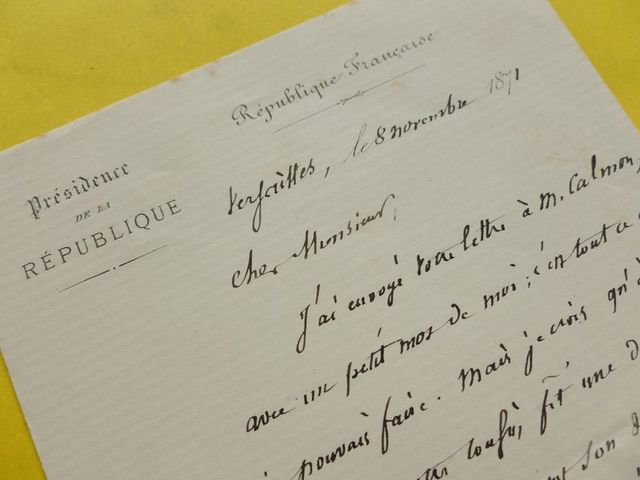 République Française
Présidence
DE LA
RÉPUBLIQUE
Versailles, le 8 novembre 1871
Cher Monsieur,
J'ai envoyé votre lettre à M. Calmon,
avec un petit mot de moi; c'est tout ce
pouvais faire. Mais je crois qu'
fit une d
son d